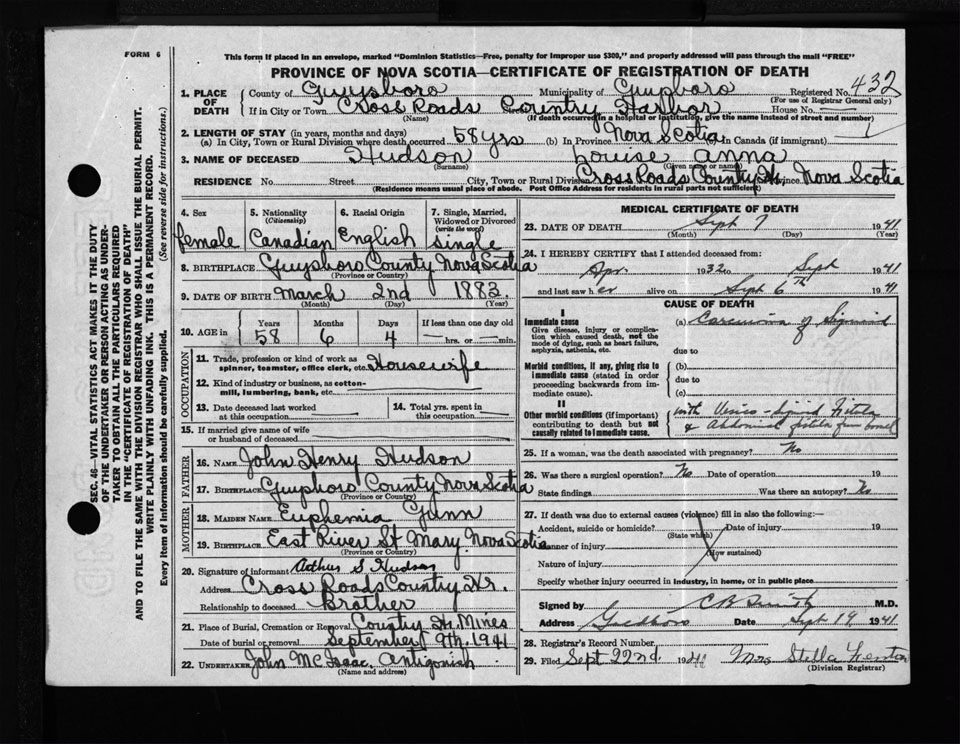 FORM 6
SEC. 46—VITAL STATISTICS ACT MAKES IT THE DUTY
OF THE UNDERTAKER OR PERSON ACTING AS UNDER-
TAKER TO OBTAIN ALL THE PARTICULARS REQUIRED
IN THE "CERTIFICATE OF REGISTRATION OF DEATH"
AND TO FILE THE SAME WITH THE DIVISION REGISTRAR WHO SHALL ISSUE THE BURIAL PERMIT.
WRITE PLAINLY WITH UNFADING INK. THIS IS A PERMANENT RECORD.
Every item of information should be carefully supplied. (See reverse side for instructions.)
This form if placed in an envelope, marked "Dominion Statistics—Free, penalty for improper use $300," and properly addressed will pass through the mail "FREE"
PROVINCE OF NOVA SCOTIA—CERTIFICATE OF REGISTRATION OF DEATH
1. PLACE OF DEATH County of Guysboro Municipality of Guysboro Registered No. 432
(For use of Registrar General only)
If in City or Town Cross Roads Country Harbor House No.
(Name) (If death occurred in a hospital or institution, give the name instead of street and number)
2. LENGTH OF STAY (in years, months and days)
(a) In City, Town or Rural Division where death occurred 58 yrs (b) In Province Nova Scotia (c) In Canada (if immigrant)
3. NAME OF DECEASED Hudson Louise Anna
(Surname) (Given name or names)
RESIDENCE No. Street City, Town or Rural Division Cross Roads Country Hr. Province Nova Scotia
(Residence means usual place of abode. Post Office Address for residents in rural parts not sufficient)
4. Sex female
5. Nationality (Citizenship) Canadian
6. Racial Origin English
7. Single, Married, Widowed or Divorced (write the word) single
8. BIRTHPLACE Guysboro County Nova Scotia
(Province or Country)
9. DATE OF BIRTH March 2nd 1883
(Month) (Day) (Year)
10. AGE in Years 58 Months 6 Days 4 If less than one day old hrs. or min.
OCCUPATION
11. Trade, profession or kind of work as spinner, teamster, office clerk, etc. Housewife
12. Kind of industry or business, as cotton-mill, lumbering, bank, etc.
13. Date deceased last worked at this occupation
14. Total yrs. spent in this occupation
15. If married give name of wife or husband of deceased
FATHER
16. NAME John Henry Hudson
17. BIRTHPLACE Guysboro County Nova Scotia
(Province or Country)
MOTHER
18. MAIDEN NAME Euphemia Gunn
19. BIRTHPLACE East River St Mary Nova Scotia
(Province or Country)
20. Signature of informant Arthur S Hudson
Address Cross Roads Country Hr.
Relationship to deceased Brother
21. Place of Burial, Cremation or Removal Country Hr. Mines
Date of burial or removal September 9th. 1941
22. UNDERTAKER John McIsaac. Antigonish
(Name and address)
MEDICAL CERTIFICATE OF DEATH
23. DATE OF DEATH Sept 7 1941
(Month) (Day) (Year)
24. I HEREBY CERTIFY that I attended deceased from:
Apr. 1932 to Sept 1941
and last saw her alive on Sept 6th 1941
CAUSE OF DEATH
I
Immediate cause
Give disease, injury or complication which caused death, not the mode of dying, such as heart failure, asphyxia, asthenia, etc.
(a) Carcinoma of Sigmoid
due to
Morbid conditions, if any, giving rise to immediate cause (stated in order proceeding backwards from immediate cause).
(b)
due to
(c)
II
Other morbid conditions (if important) contributing to death but not causally related to immediate cause.
with Vesico-Sigmoid Fistula
& Abdominal fistula from bowel
25. If a woman, was the death associated with pregnancy? No
26. Was there a surgical operation? No Date of operation 19
State findings Was there an autopsy? No
27. If death was due to external causes (violence) fill in also the following:—
Accident, suicide or homicide? Date of injury 19
(State which)
Manner of injury
(How sustained)
Nature of injury
Specify whether injury occurred in industry, in home, or in public place
Signed by C B Smith M.D.
Address Goldboro Date Sept 19 1941
28. Registrar's Record Number
29. Filed Sept 22nd 1941 Mrs Stella Fenton
(Division Registrar)